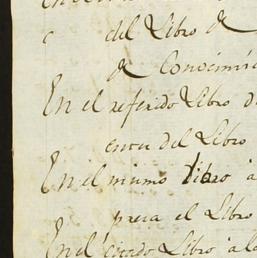 del Libro de
de Conocimi
En el referido Libro d
encu del Libro
En el mismo libro à
presa el Libro
En el citado Libro à la